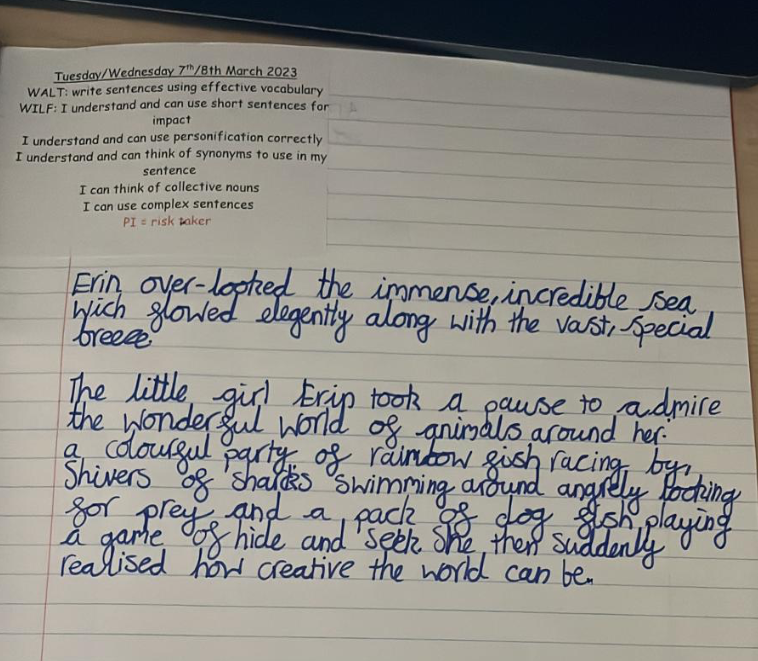 Tuesday/Wednesday 7th/8th March 2023
WALT: write sentences using effective vocabulary
WILF: I understand and can use short sentences for
impact
I understand and can use personification correctly
I understand and can think of synonyms to use in my
sentence
I can think of collective nouns
I can use complex sentences
PI = risk taker
Erin over-looked the immense, incredible sea
wich glowed elegently along with the vast, special
breeze.
The little girl Erin took a pause to admire
the wonderful world of animals around her.
a colourful party of rainbow fish racing by,
Shivers of sharks swimming around angrely looking
for prey and a pack of dog fish playing
a game of hide and seek. She then suddenly
realised how creative the world can be.